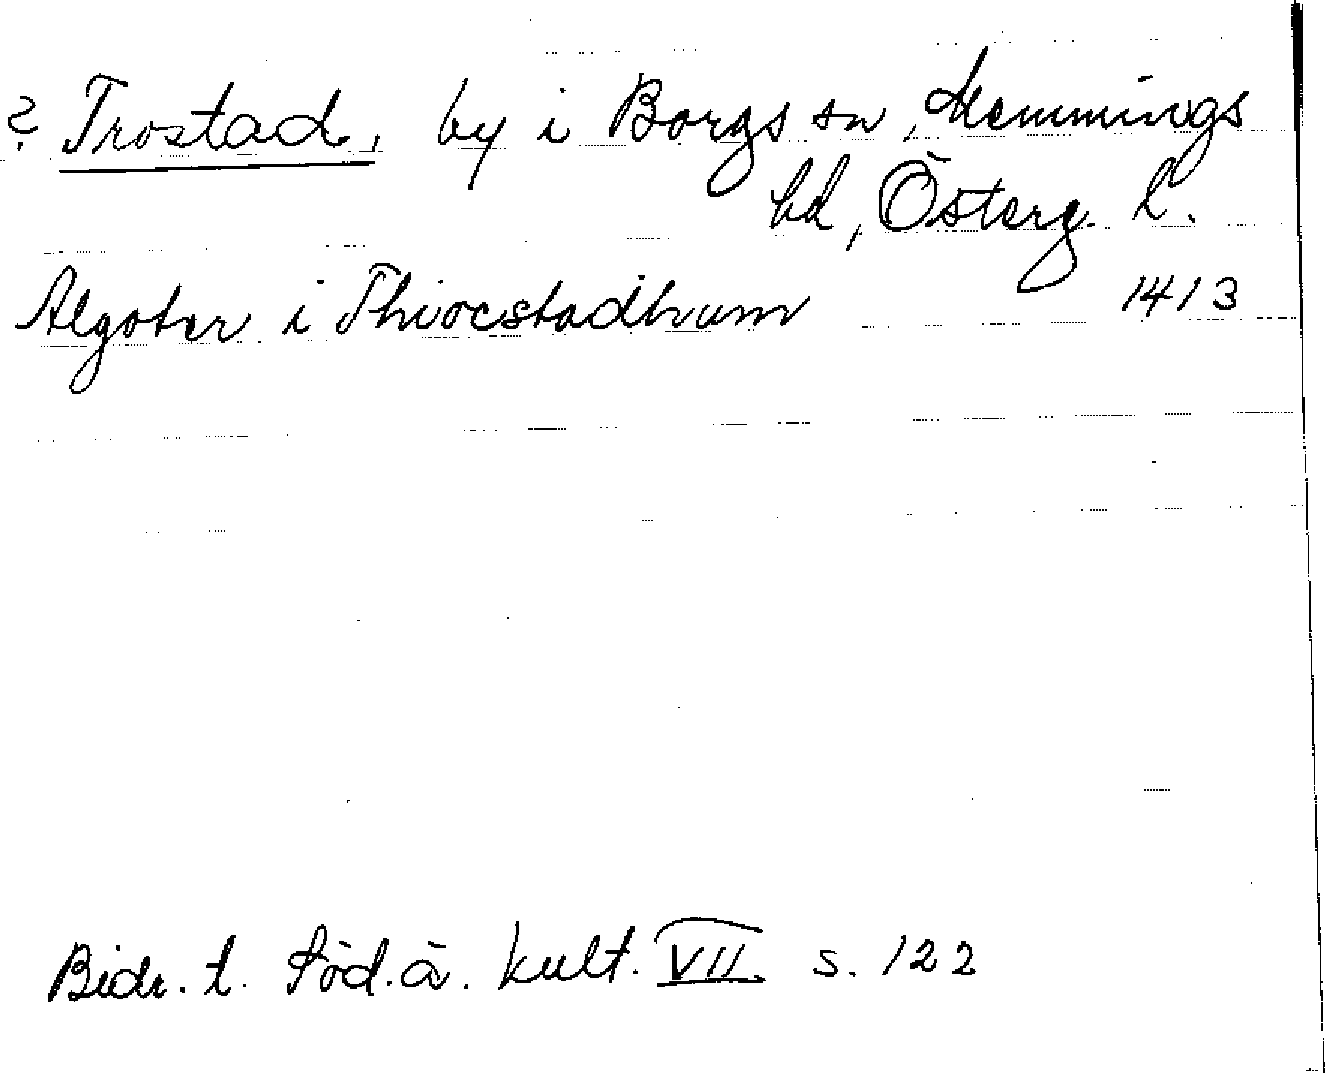 ? Trostad, by i Borgs sn, Memmings
hd, Österg. L.
Algoter i Throcstadhum 1413
Bidr. t. Söd.ä. kult. VII. s. 122